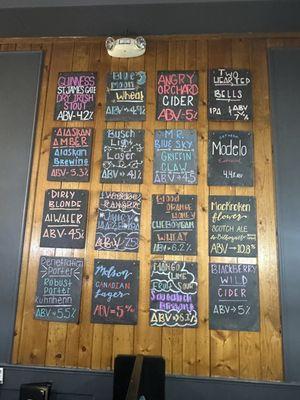 GUINNESS
ST. JAMES GATE
DRY IRISH
STOUT
ABV-4.2%
Blue
Moon
Wheat
ANGRY
ORCHARD
CIDER
ABV-5%
TWO
HEARTED
BELLS
IPA
ABV
7%
ALASKAN
AMBER
Alaskan
Brewing
ABV-5.3%
Busch
Light
Lager
MR.
BLUE SKY
GRIFFIN
CLAW
ABV-4.5
Modelo
4.4
DIRTY
BLONDE
ATWATER
ABV-4.5%
JUICY
Blood
ORANGE
HONEY
CHEBOYGAN
WHEAT
ABV-6.2%
SCOTCH ALE
ABV
Penetration
Porter
Robust
Porter
Kuhnhenn
ABV-5.5%
Molson
CANADIAN
Lager
ABV-5%
MANGO
LIME
SOUR
BLACKBERRY
WILD
CIDER
ABV-5%